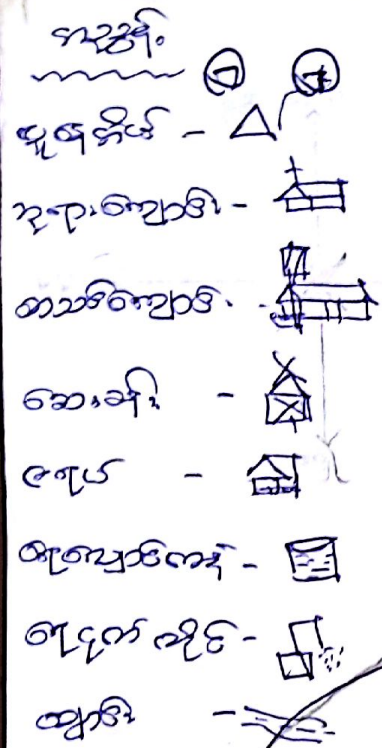 အညွှန်း
လူနေအိမ် -
ဘုရားကျောင်း -
စာသင်ကျောင်း -
ဆေးခန်း -
ဇရပ် -
ရေလှောင်ကန် -
ရေငုတ်တိုင် -
ချောင်း -